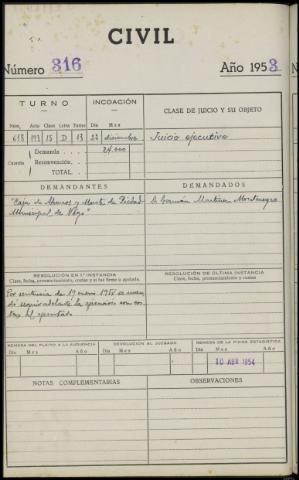 CIVIL
Número 316 Año 1953
TURNO INCOACIÓN CLASE DE JUICIO Y SU OBJETO
Núm. Arto Clase Letra Turno Día Mes
618 15 D 13 22 diciembre Juicio ejecutivo
Cuantía Demanda 24.000
Reconvención
TOTAL
DEMANDANTES DEMANDADOS
"Caja de Ahorros y Monte de Piedad D. Germán Martínez Montenegro
Municipal de Vigo"
RESOLUCIÓN EN 1ª INSTANCIA RESOLUCIÓN DE ÚLTIMA INSTANCIA
Clase, fecha, pronunciamiento, costas y si fué firme o apelada. Clase, fecha, pronunciamiento y costas
Por sentencia de 19 enero 1954 se manda
seguir adelante la ejecución con cos
tas al ejecutado
REMESA DEL PLEITO A LA AUDIENCIA DEVOLUCIÓN AL JUZGADO REMESA DE LA FICHA ESTADÍSTICA
Día Mes Año Día Mes Año Día Mes Año
10 ABR 1954
NOTAS COMPLEMENTARIAS OBSERVACIONES